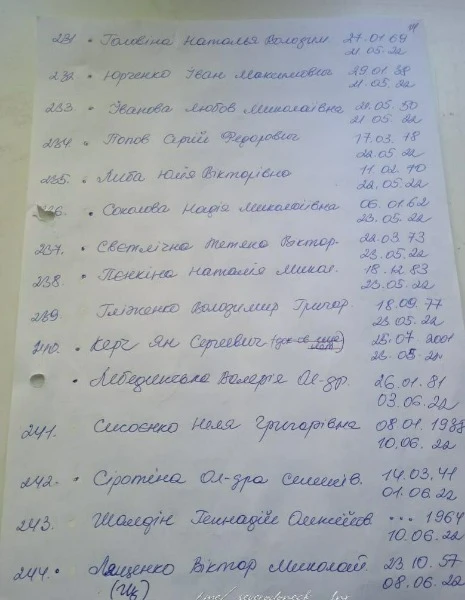 231. • Головіна Наталья Володим 27.01.69
21.05.22
232. • Юрченко Іван Максимович 29.01.38
21.05.22
233. • Іванова Любов Миколаївна 21.05.50
21.05.22
234. • Попов Сергій Федорович 17.03.78
22.05.22
235. • Либа Юлія Вікторівна 11.02.70
22.05.22
236. • Соколова Надія Миколаївна 06.01.62
23.05.22
237. • Світлічна Тетяна Віктор. 22.03.73
23.05.22
238. • Пєнкіна Наталія Микол. 18.12.83
23.05.22
239. Володимир Григор. 18.09.77
23.05.22
240. • Керч Ян Сергеевич 25.07.2001
23.05.22
• Лебединська Валерія Ол-др. 26.01.81
03.06.22
241. Сисоєнко Неля Григорівна 08.01.1938
10.06.22
242. • Сіротіна Ол-дра Семенів. 14.03.41
01.06.22
243. Геннадій Олексійов. ... 1964
10.06.22
244. • Віктор Миколай. 23.10.57
08.06.22